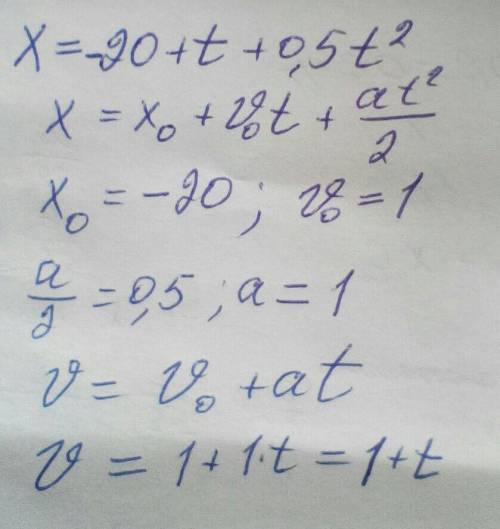 x = -20 + t + 0,5t²
x = x₀ + v₀t + at²/2
x₀ = -20; v₀ = 1
a/2 = 0,5; a = 1
v = v₀ + at
v = 1 + 1·t = 1 + t